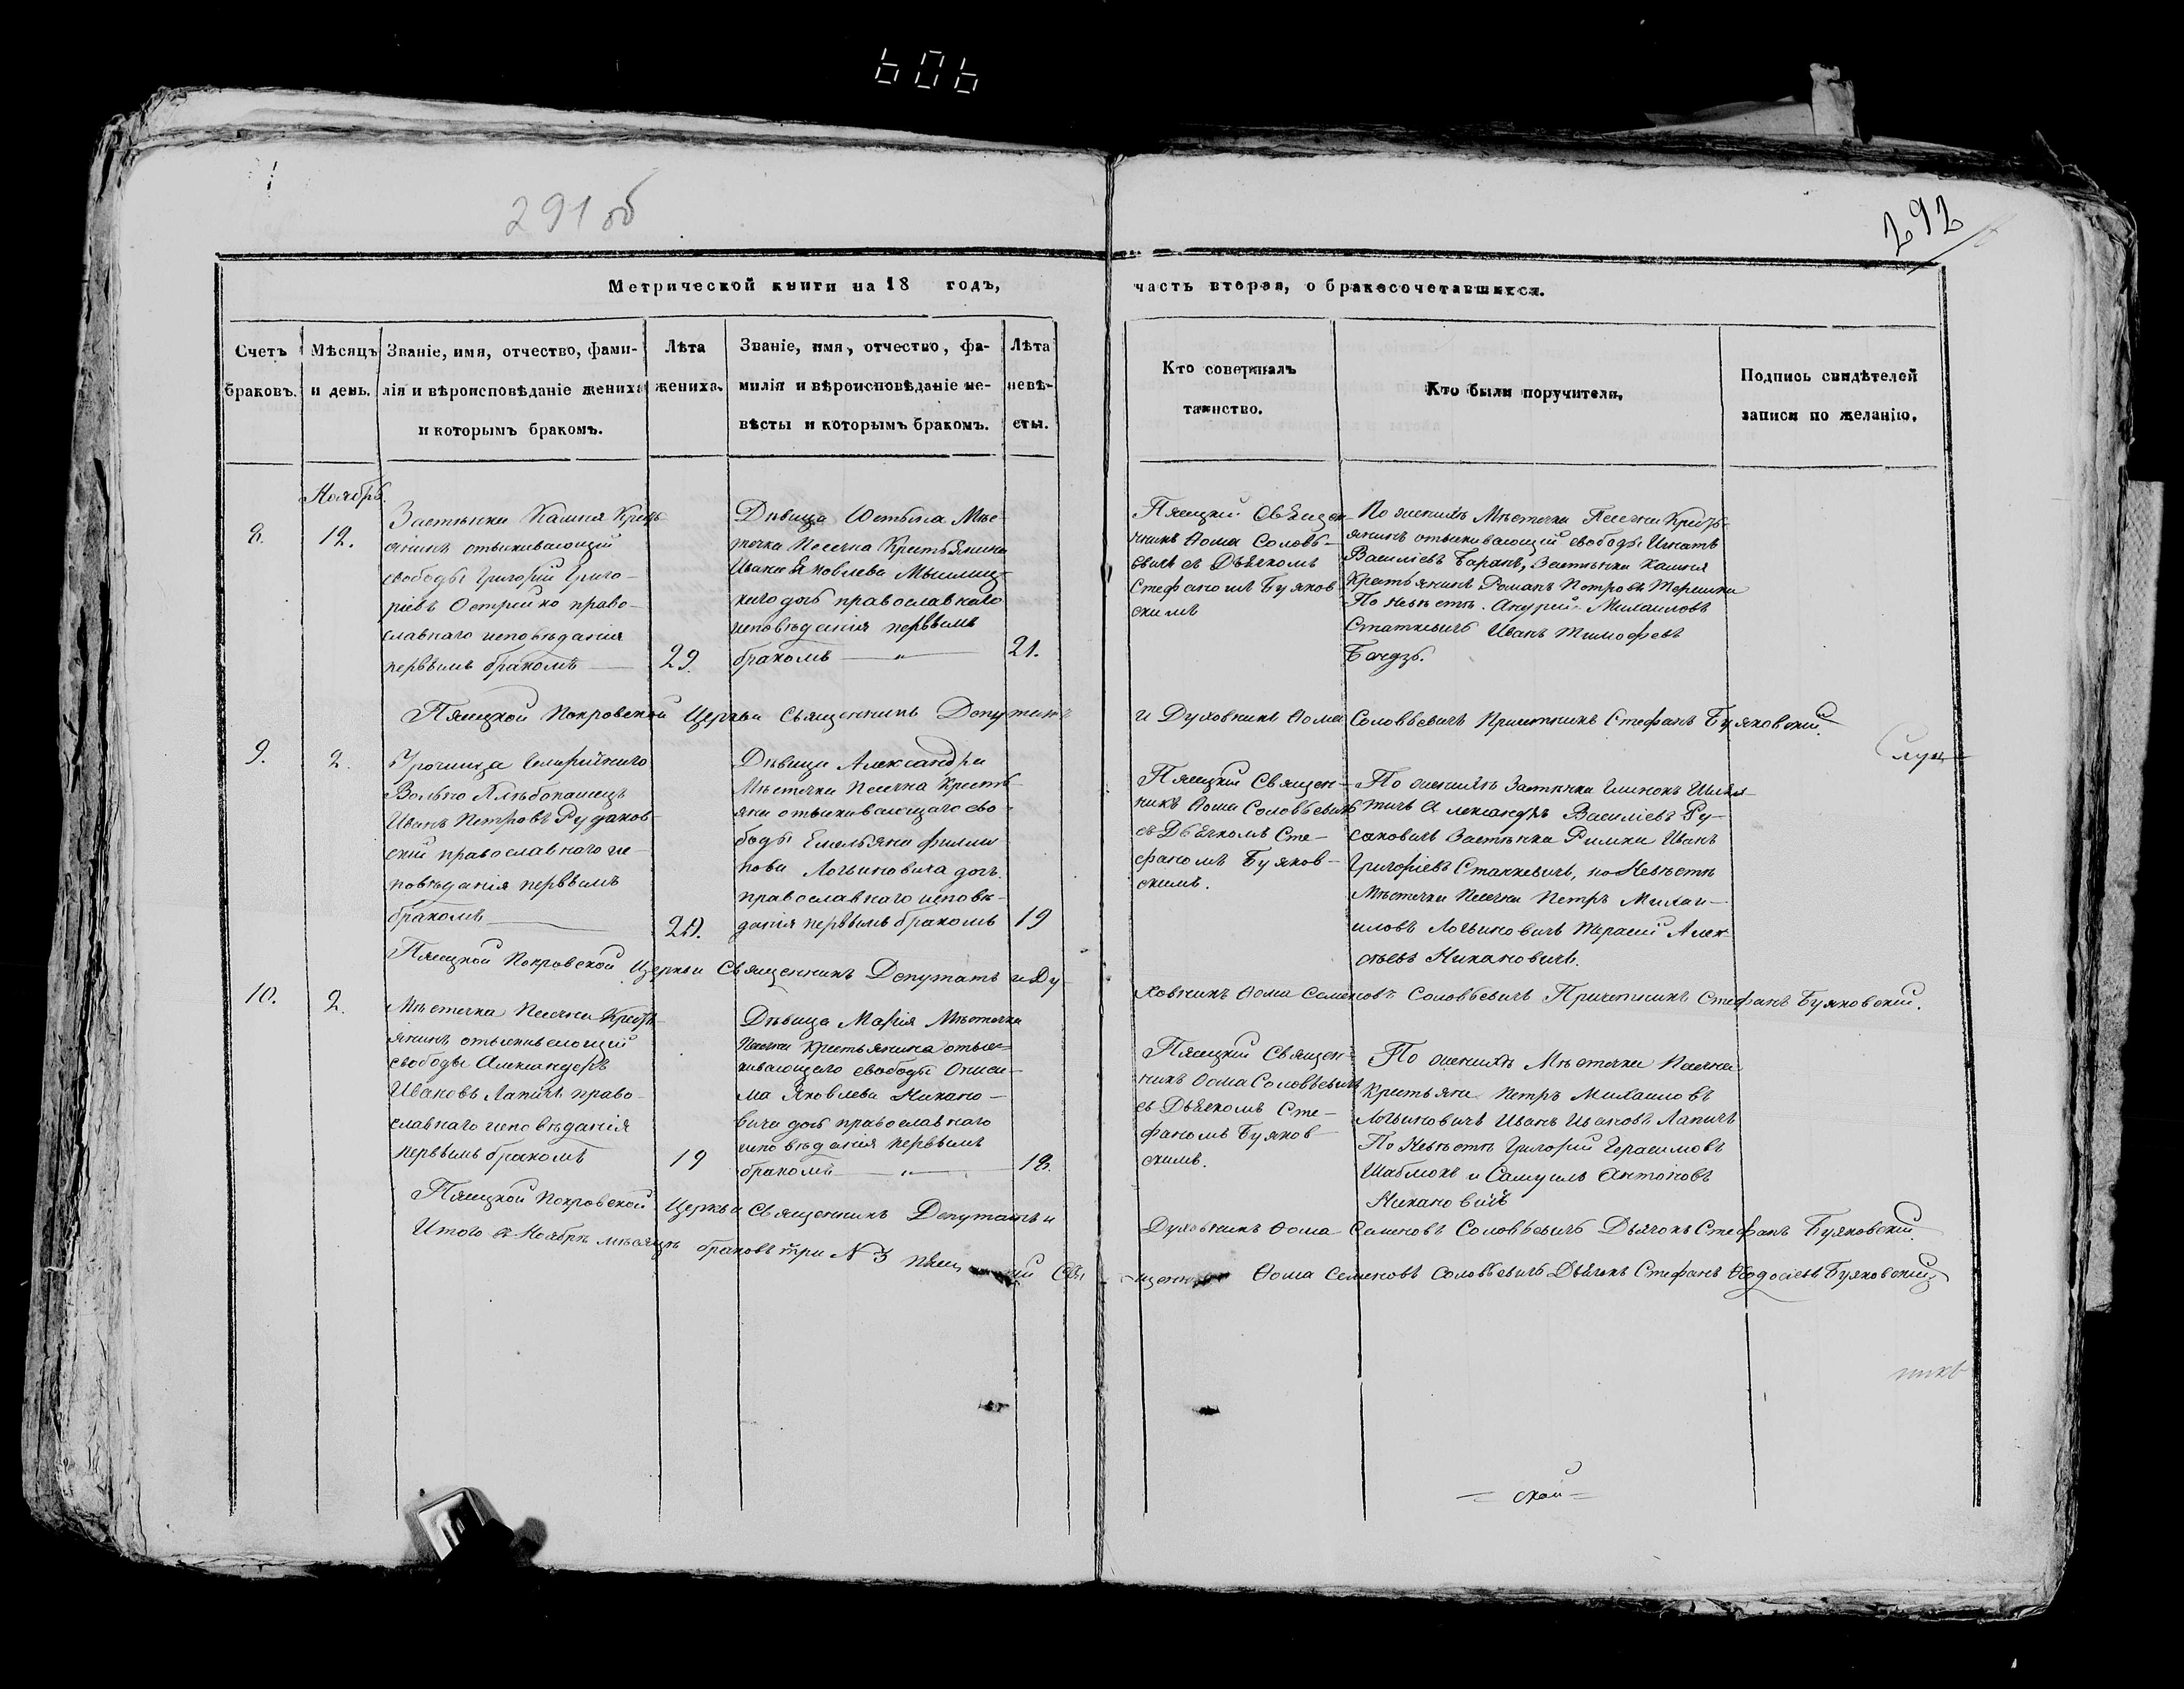 606
291 об
292
Метрической книги на 18 годъ,
часть вторая, о бракосочетавшихся.
Счетъ браковъ.
Мѣсяцъ и день.
Званіе, имя, отчество, фами-
лія и вѣроисповѣданіе жениха
и которымъ бракомъ.
Лѣта
жениха.
Званіе, имя, отчество, фа-
милія и вѣроисповѣданіе не-
вѣсты и которымъ бракомъ.
Лѣта
невѣ-
сты.
Кто совершалъ
таинство.
Кто были поручители.
Подпись свидѣтелей
записи по желанію.
Ноябрь.
8.
12.
Застѣнка Камня Кресть-
янинъ отыскивающій
свободы Григорій Григо-
ріевъ Острейко право-
славнаго исповѣданія
первымъ бракомъ
29.
Дѣвица Мѣс-
течка Песечна Крестьянина
Ивана Яковлева
дочь православнаго
исповѣданія первымъ
бракомъ
21.
Священ-
никъ Ѳома Соловь-
евичъ съ Дьячкомъ
Стефаномъ Буяков-
скимъ
По женихѣ Мѣстечка Песечна Кресть-
янинъ отыскивающій свободы Игнатъ
Василіевъ Баранъ, Застѣнка Камня
Крестьянинъ Романъ Петровъ
По невѣстѣ Андрей Михаиловъ
Статкевичъ Иванъ Тимофеевъ
Покровской Церкви Священникъ Депутатъ
и Духовникъ Ѳома Соловьевичъ Причетникъ Стефанъ Буяковскій.
9.
2.
Урочища
Вольно
Иванъ Петровъ Рудаков-
скій православнаго ис-
повѣданія первымъ
бракомъ
20.
Дѣвица Александра
Мѣстечка Песечна Кресть-
яна отыскивающаго сво-
боды Емельяна Филип-
пова Логвиновича дочь
православнаго исповѣ-
данія первымъ бракомъ
19
Священ-
никъ Ѳома Соловьевичъ
съ Дьячкомъ Сте-
фаномъ Буяков-
скимъ.
По женихѣ Застѣнка
Александръ Василіевъ Ру-
саковичъ Застѣнка Римки Иванъ
Григоріевъ Станкевичъ, по Невѣстѣ
Мѣстечка Песечна Петръ Михаи-
ловъ Логвиновичъ Терасій Алек-
сѣевъ Никановичъ.
Покровской Церкви Священникъ Депутатъ и Ду-
ховникъ Ѳома Семеновъ Соловьевичъ Причетникъ Стефанъ Буяковскій.
10.
2.
Мѣстечка Песечна Кресть-
янинъ отыскивающій
свободы Александръ
Ивановъ Лапичъ право-
славнаго исповѣданія
первымъ бракомъ
19
Дѣвица Марія Мѣстечка
Песечна Крестьянина отыс-
кивающаго свободы Ониси-
ма Яковлева Никано-
вича дочь православнаго
исповѣданія первымъ
бракомъ
18.
Священ-
никъ Ѳома Соловьевичъ
съ Дьячкомъ Сте-
фаномъ Буяков-
скимъ.
По женихѣ Мѣстечка Песечна
Крестьяне Петръ Михаиловъ
Логвиновичъ Иванъ Ивановъ Лапичъ
По Невѣстѣ Григорій Герасимовъ
Шаблюкъ и Самуилъ Антоновъ
Никановичъ
Покровской Церкви Священникъ Депутатъ и
Духовникъ Ѳома Семеновъ Соловьевичъ Дьячокъ Стефанъ Буяковскій.
Итого въ Ноябрѣ мѣсяцѣ браковъ три № 3
Ѳома Семеновъ Соловьевичъ Дьячокъ Стефанъ Ѳеодосіевъ Буяковскій
ской